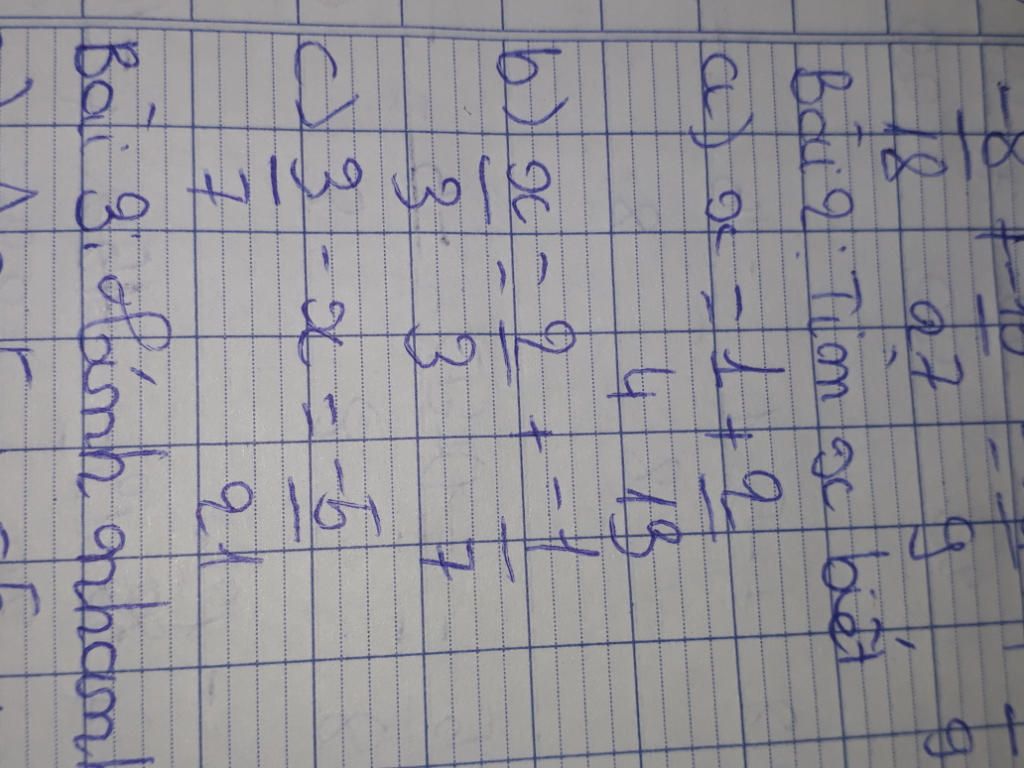 -8/18 + -10/27
Bài 2: Tìm x biết
a) x = 1/4 + 2/13
b) x/3 = 2/3 + -1/7
c) 3/7 - x = -5/21
Bài 3: Tính nhanh